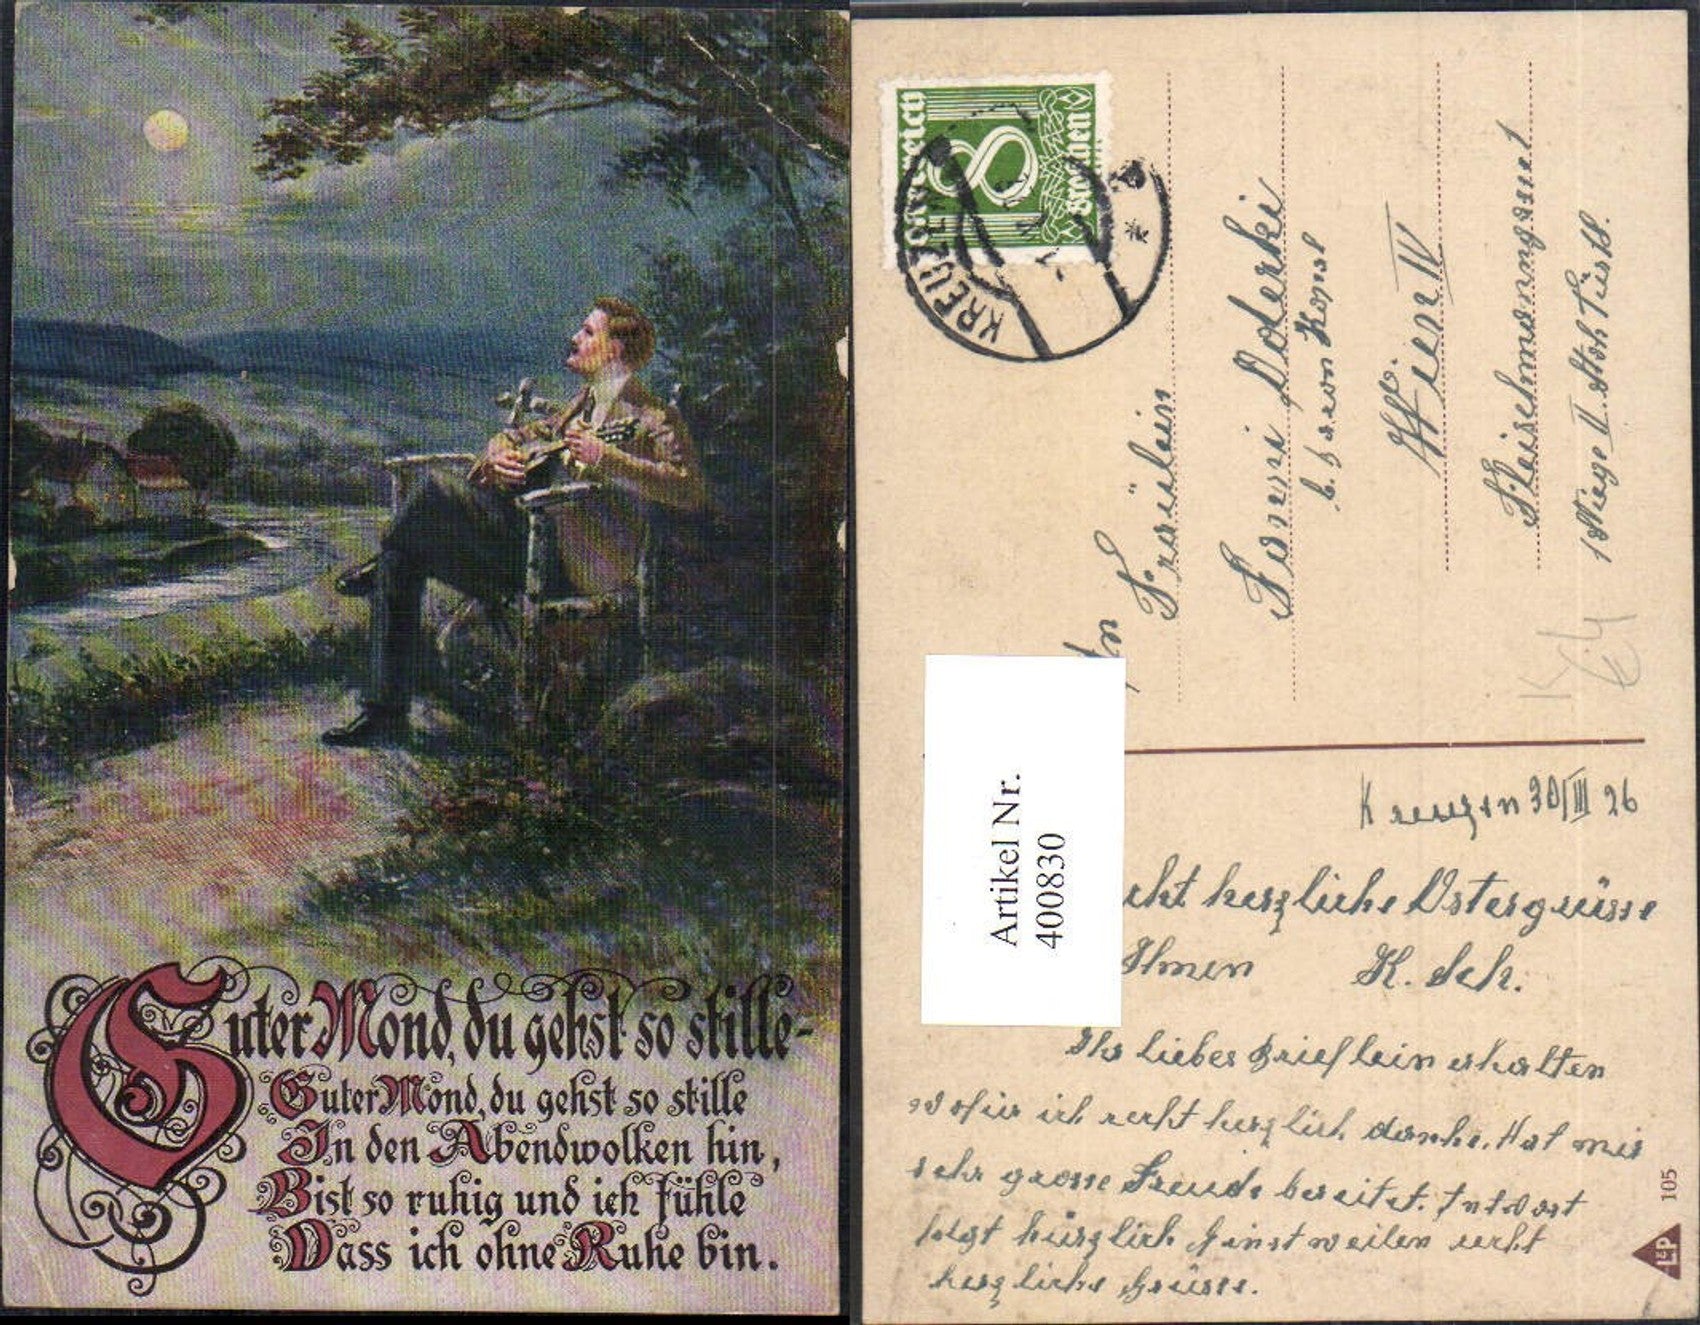 Guter Mond, du gehst so stille-
Guter Mond, du gehst so stille
In den Abendwolken hin,
Bist so ruhig und ich fühle
Dass ich ohne Ruhe bin.
Österreich
8
Groschen
KREUZEN
An
Fräulein
Fanni
b. Baron
Wien IV
Stiege II Stock Tür 11.
Artikel Nr.
400830
Kreuzen 30/III 26
recht herzliche Ostergrüsse
Ihnen K. Sch.
Ihr liebes Brieflein erhalten
wofür ich recht herzlich danke. Hat mir
sehr grosse Freude bereitet. Antwort
folgt kürzlich. Einstweilen recht
herzliche Grüsse.
105
L&P